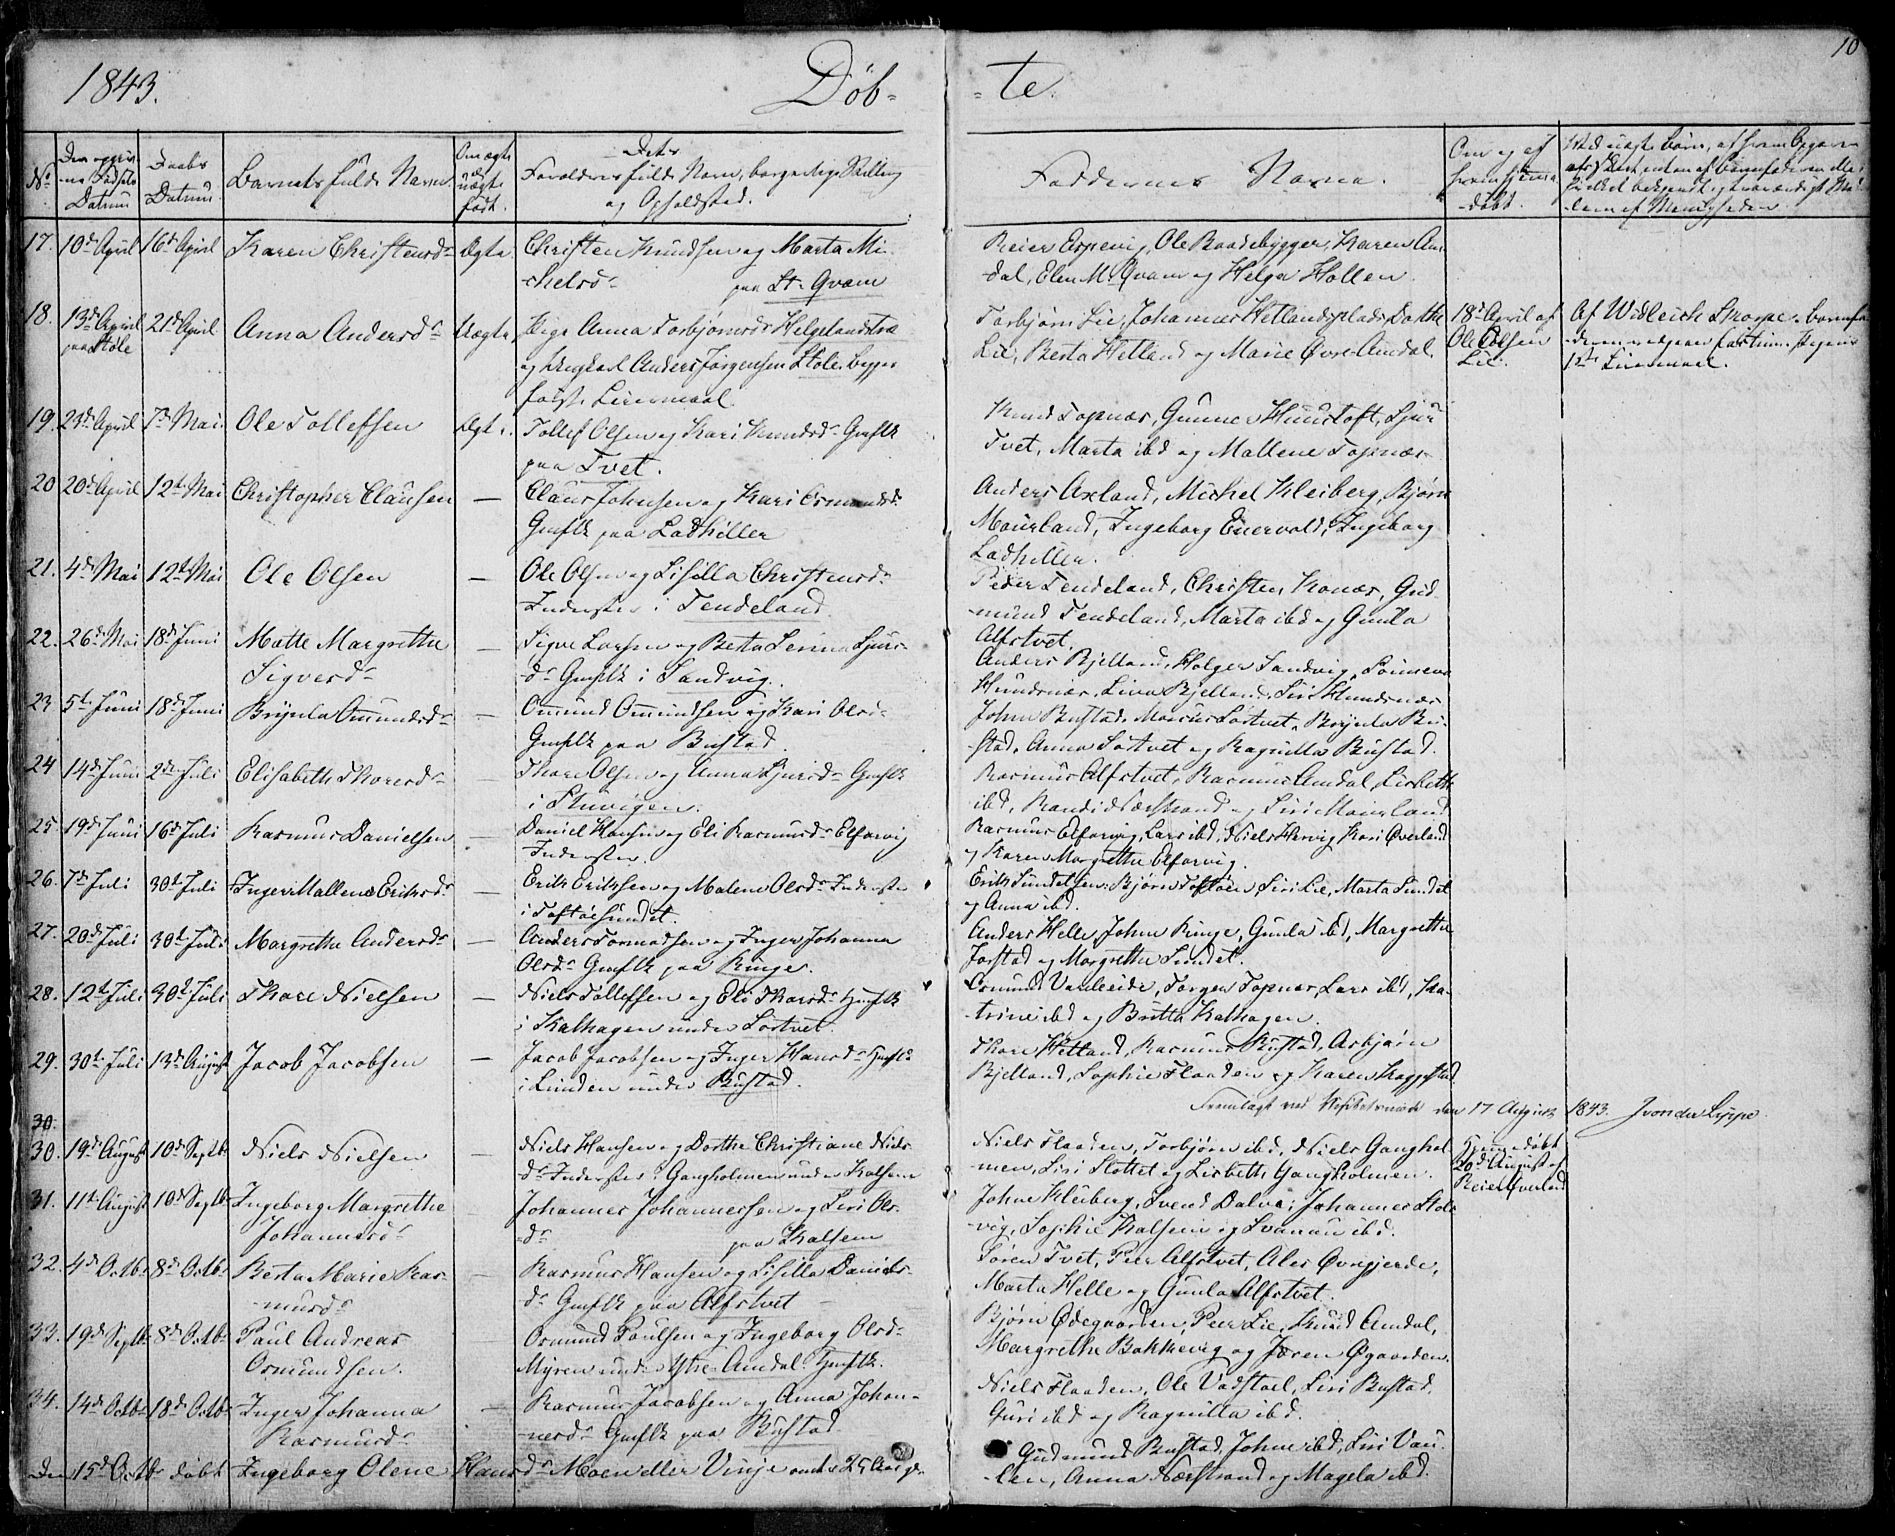 10
1843.
Døb-
-te.
No
Datum
Daabs Datum
Barnets fulde Navn
født.
Forældres fulde Navn, borgerlige Stilling
og Opholdsted.
Faddernes Navne.
Om og af hvem hjemmedøbt.
17. 10de April 16de April Karen Christensdr Ægte Christen Knudsen og Marta Mi-
chelsdr paa St. Qvam
Reier Espevig, Ole Baadebygger, Karen Am-
dal, Elen M. Qvam og Helga Hollen.
18. 13de April 21de April Anna Andersdr Uægte Pige Anna Torbjørnsdr Helgelandstræ
paa Støle
og Ungkarl Anders Jørgensen Støle, begges
første Leiermaal.
Torbjørn Lie, Johannes Hetlandsplads, Dorthe
Lie, Berta Hetland og Marie Øvre Amdal.
18de April af
Ole Olsen
Lie.
19. 23de April 7de Mai Ole Tollefsen Ægte. Tollef Olsen og Kari Knudsdr Gmflk
paa Tvet.
Knud Topnæs, Gunner Huustoft, Sjur
Tvet, Marta ibd og Mallene Topnæs
20 20de April 12te Mai Christopher Clausen — Claus Johnsen og Kari Osmundsdr
Gmflk paa Ladhiller
Anders Axland, Michel Kleiberg, Bjørn
Mourland, Ingeborg Euervold, Ingeborg
Ladhiller.
21. 4de Mai 12te Mai Ole Olsen — Ole Olsen og Sisilla Christensdr
Inderster i Tendeland
Peder Tendeland, Christen Konæs, Gud-
mund Tendeland, Marta ibd og Gunla
Alfstvet.
22. 26de Mai 18de Juni Mette Margrethe — Sigve Larsen og Berta Serina Sjurs-
Sigvesdr
dr Gmflk i Sandvig.
Anders Bjelland, Holger Sandvig, Sønneva
Hundsnæs, Lina Bjelland, Siri Hundsnæs
23 5te Juni 18de Juni Brynla Omundsdr — Omund Omundsen og Kari Olsdr
Gmflk paa Bustad.
John Bustad, Marcus Løstvet, Brynla Bu-
stad, Anna Løstvet og Ragnilla Bustad.
24 14de Juni 2den Juli Elisabeth Thoresdr — Thore Olsen og Anna Sjursdr Gmflk
i Stuvigen.
Rasmus Alfstvet, Rasmus Amdal, Lisbeth
ibd, Randi Nærstrand og Siri Mourland
25 19de Juni 16de Juli Rasmus Danielsen — Daniel Hansen og Eli Rasmusdr Elfarvig
Inderster.
Rasmus Elfarvig, Lars ibd, Niels Hervig, Kari Øverland
og Karen Margrethe Elfarvig.
26. 7de Juli 30te Juli Inger Mallene Eriksdr — Erik Eriksen og Malene Olsdr Inderster
i Toftøesundet.
Erik Sundet, Bjørn Toftøen, Siri Lie, Marta Sundet
og Anna ibd.
27. 20de Juli 30te Juli Margrethe Andersdr — Anders Tormodsen og Inger Johanna
Olsdr Gmflk paa Ringe.
Anders Helle, John Ringe, Gunla ibd, Margrethe
Jorstad og Margrethe Sundet.
28. 12te Juli 30te Juli Thore Nielsen — Niels Tollefsen og Eli Thorsdr Gmflk
i Kalhagen under Løstvet.
Osmund Vanleeide, Jørgen Topnæs, Lars ibd, Ka-
trine ibd og Britta Kalhagen.
29. 30te Juli 13de August Jacob Jacobsen — Jacob Jacobsen og Inger Hansdr Gmflk
i Linden under Bustad.
Thore Hetland, Rasmus Bustad, Asbjørn
Bjelland, Sophie Flaaden og Karen Koggestad
Fremlagt ved den 17 August 1843. J von der Lippe.
30.
30. 19de August 10de Septbr Niels Nielsen — Niels Hansen og Dorthe Christiane Niels-
dr Inderster i Gangholmen under Kalsem
Niels Flaaden, Torbjørn ibd, Niels Ganghol-
men, Siri Stottet og Lisbeth Gangholmen.
Hjemmedøbt
20de August af
Reier Øverland
31. 11te August 10de Septbr Ingeborg Margrethe Johannes Johannessen og Siri Ols-
Johannesdr
dr paa Kalsem
John Kleiberg, Svend Dalva, Johannes Stole-
vig, Sophie Kalsem og Svanau ibd.
32. 4de Octbr 8de Octbr Berta Marie Ras- — Rasmus Hansen og Sisilla Daniels-
musdr
dr Gmflk paa Alfstvet
Søren Tvet, Peer Alfstvet, Ales Øvregjerde,
Marta Helle og Gunla Alfstvet.
33. 19de Septbr 8de Octbr Paul Andreas Osmund Paulsen og Ingeborg Olsdr
Osmundsen.
Myren under Ytre Amdal. Gmflk.
Bjørn Ødegaarden, Peer Lie, Knud Amdal,
Margrethe Bakkevig og Søren Øgaarden.
34. 14de Octbr 18de Octbr Inger Johanna — Rasmus Jacobsen og Anna Johan-
Rasmusdr
nesdr Gmflk paa Bustad.
Niels Flaaden, Ole Vadstøl, Siri Bustad,
Guri ibd og Ragnilla ibd.
Den 15de Octbr døbt Ingeborg Olene Hansdr Moen eller Vinje
Gudmund Bustad, John ibd, Siri Vau-
len, Anna Nærstrand og Magela ibd.